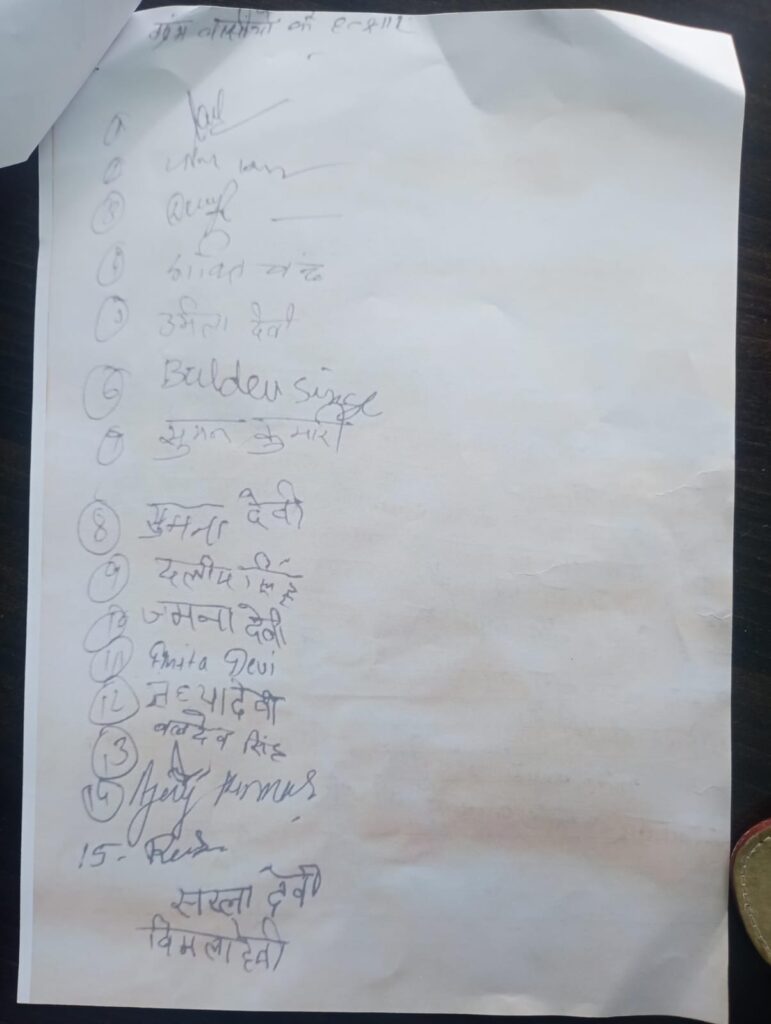 ग्राम वासियों के हस्ताक्षर
1
2
3
4 चन्द
5 उर्मिला देवी
6 Baldev Singh
7 सुमन कुमारी
8 सुमना देवी
9 दलीप सिंह
10 जमना देवी
11 Anita Devi
12 देवी
13 बलदेव सिंह
14 Ajay Kumar
15.
सरला देवी
विमला देवी